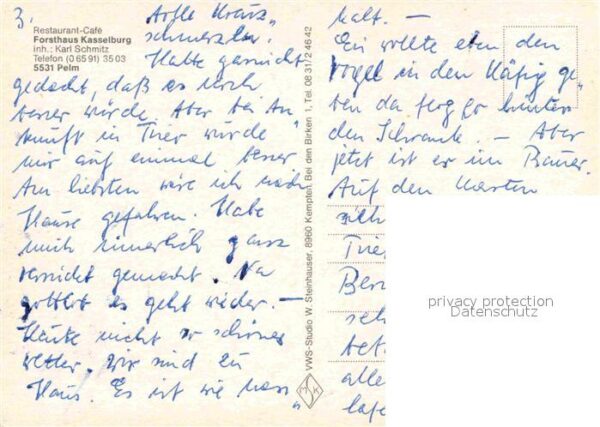 3.
Restaurant-Café
Forsthaus Kasselburg
Inh.: Karl Schmitz
Telefon (0 65 91) 35 03
5531 Pelm
tolle Kreuz„
schmerzen.
Hatte garnicht
gedacht, daß es noch
besser würde. Aber bei An„
kunft in Trier wurde
mir auf einmal besser
Am liebsten wäre ich nach
Hause gefahren. Habe
mich innerlich ganz
verrückt gemacht. Na
gottlob es geht wieder. —
Heute nicht so schönes
Wetter. Wir sind zu
Haus. Es ist wie nass„
VWS-Studio W. Steinhauser, 8960 Kempten, Bei den Birken 1, Tel. 08 31/2 46 42
kalt. —
Ein wollte eben den
Vogel in den Käfig ge„
ben da flog er hinter
den Schrank. — Aber
jetzt ist er im Bauer.
Auf den Karten
sich
Trier
Ber
seh
bet
alle
privacy protection
Datenschutz